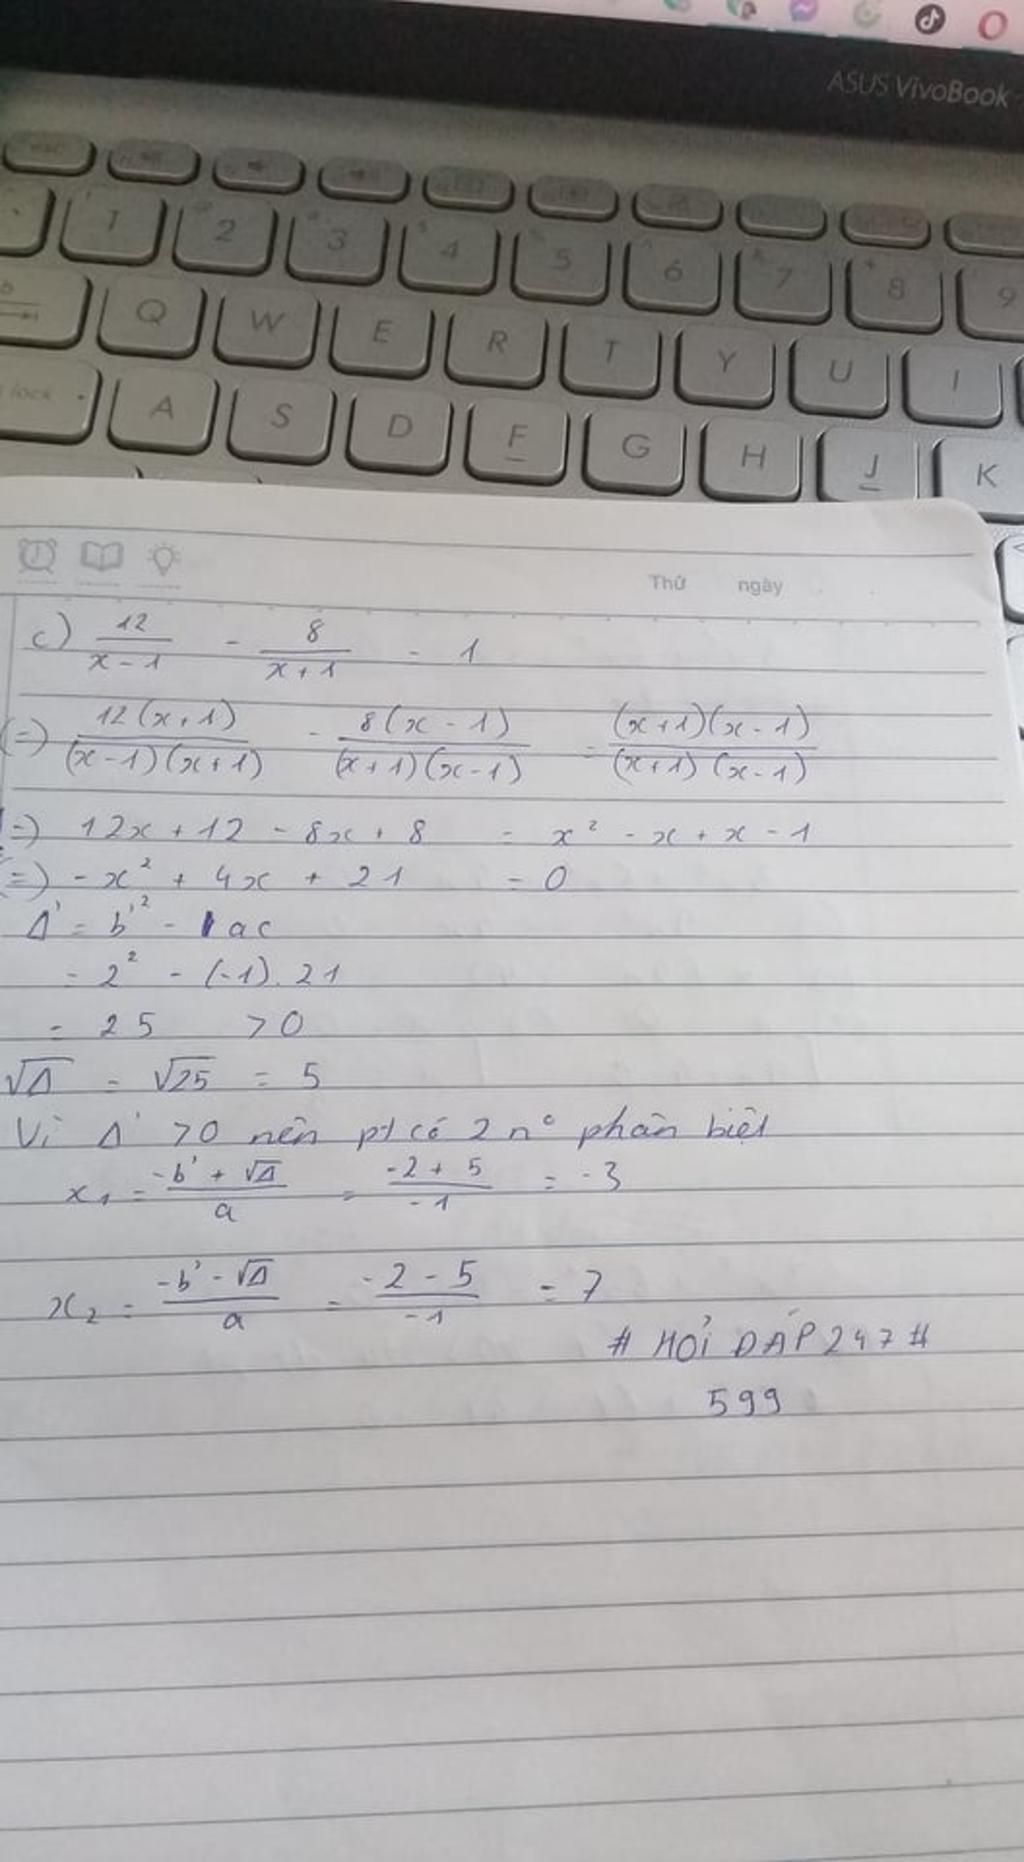 ASUS VivoBook
1 2 3 4 5 6 7 8 9
Q W E R T Y U I
lock A S D F G H J K
Thứ ngày
c) 12/(x-1) - 8/(x+1) = 1
(=) 12(x+1)/((x-1)(x+1)) - 8(x-1)/((x+1)(x-1)) = (x+1)(x-1)/((x+1)(x-1))
=) 12x + 12 - 8x + 8 = x² - x + x - 1
(=) -x² + 4x + 21 = 0
Δ' = b'² - 1ac
= 2² - (-1). 21
= 25 > 0
√Δ = √25 = 5
Vì Δ' > 0 nên pt có 2 n° phân biệt
x₁ = (-b' + √Δ)/a = (-2 + 5)/-1 = -3
x₂ = (-b' - √Δ)/a = (-2 - 5)/-1 = 7
# HỎI ĐÁP 247 #
599